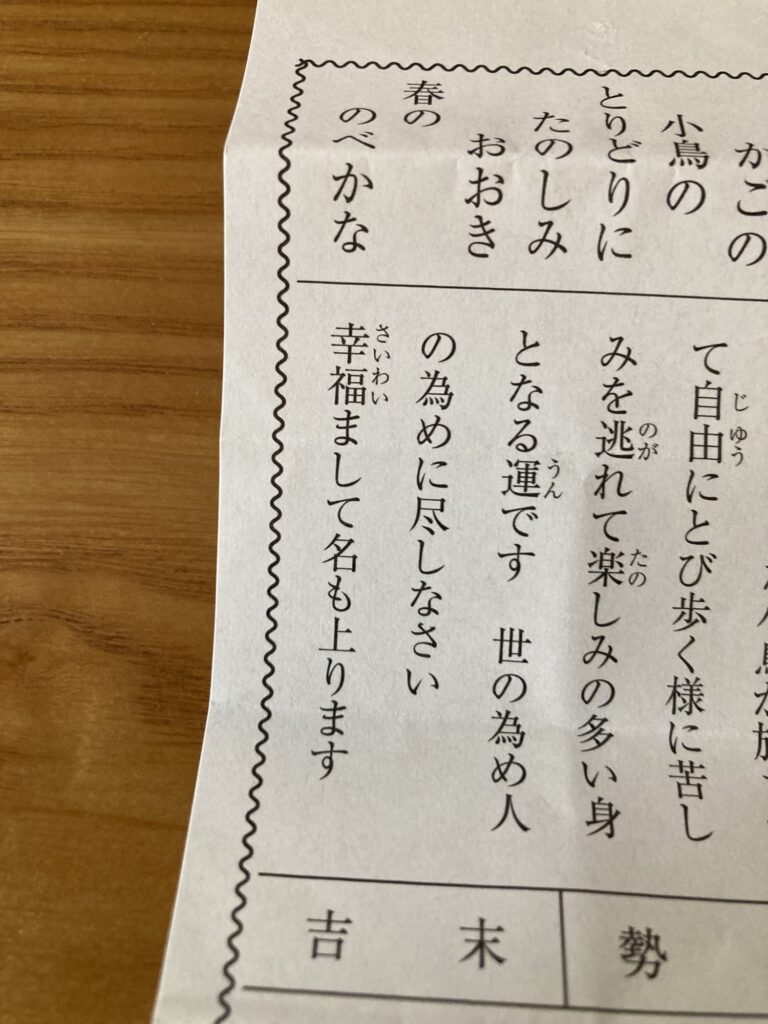 かごの
小鳥の
とりどりに
たのしみ
おおき
春の
のべかな
て自由にとび歩く様に苦し
じゆう
みを逃れて楽しみの多い身
のが
たの
となる運です 世の為め人
うん
の為めに尽しなさい
幸福まして名も上ります
さいわい
勢
末吉